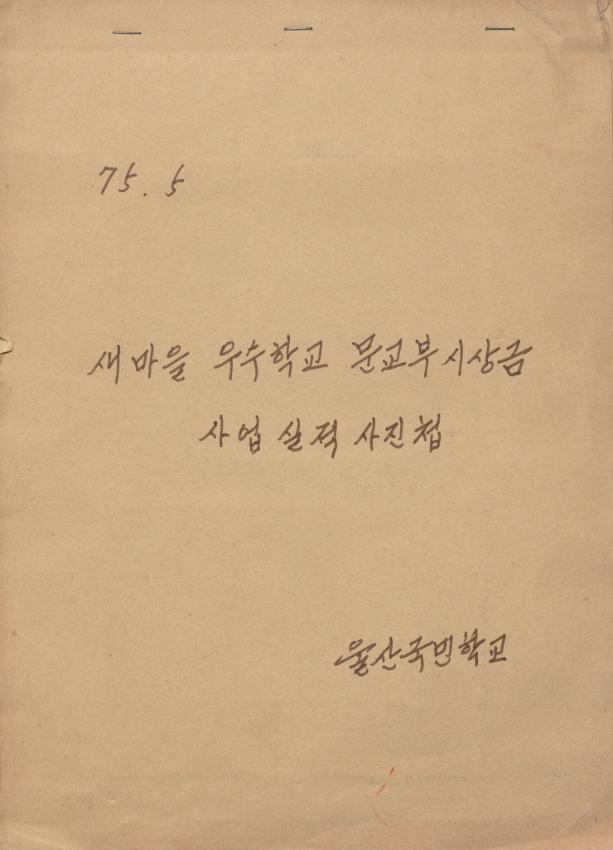 75. 5
새마을 우수학교 문교부시상금
사업 실적 사진첩
울산국민학교